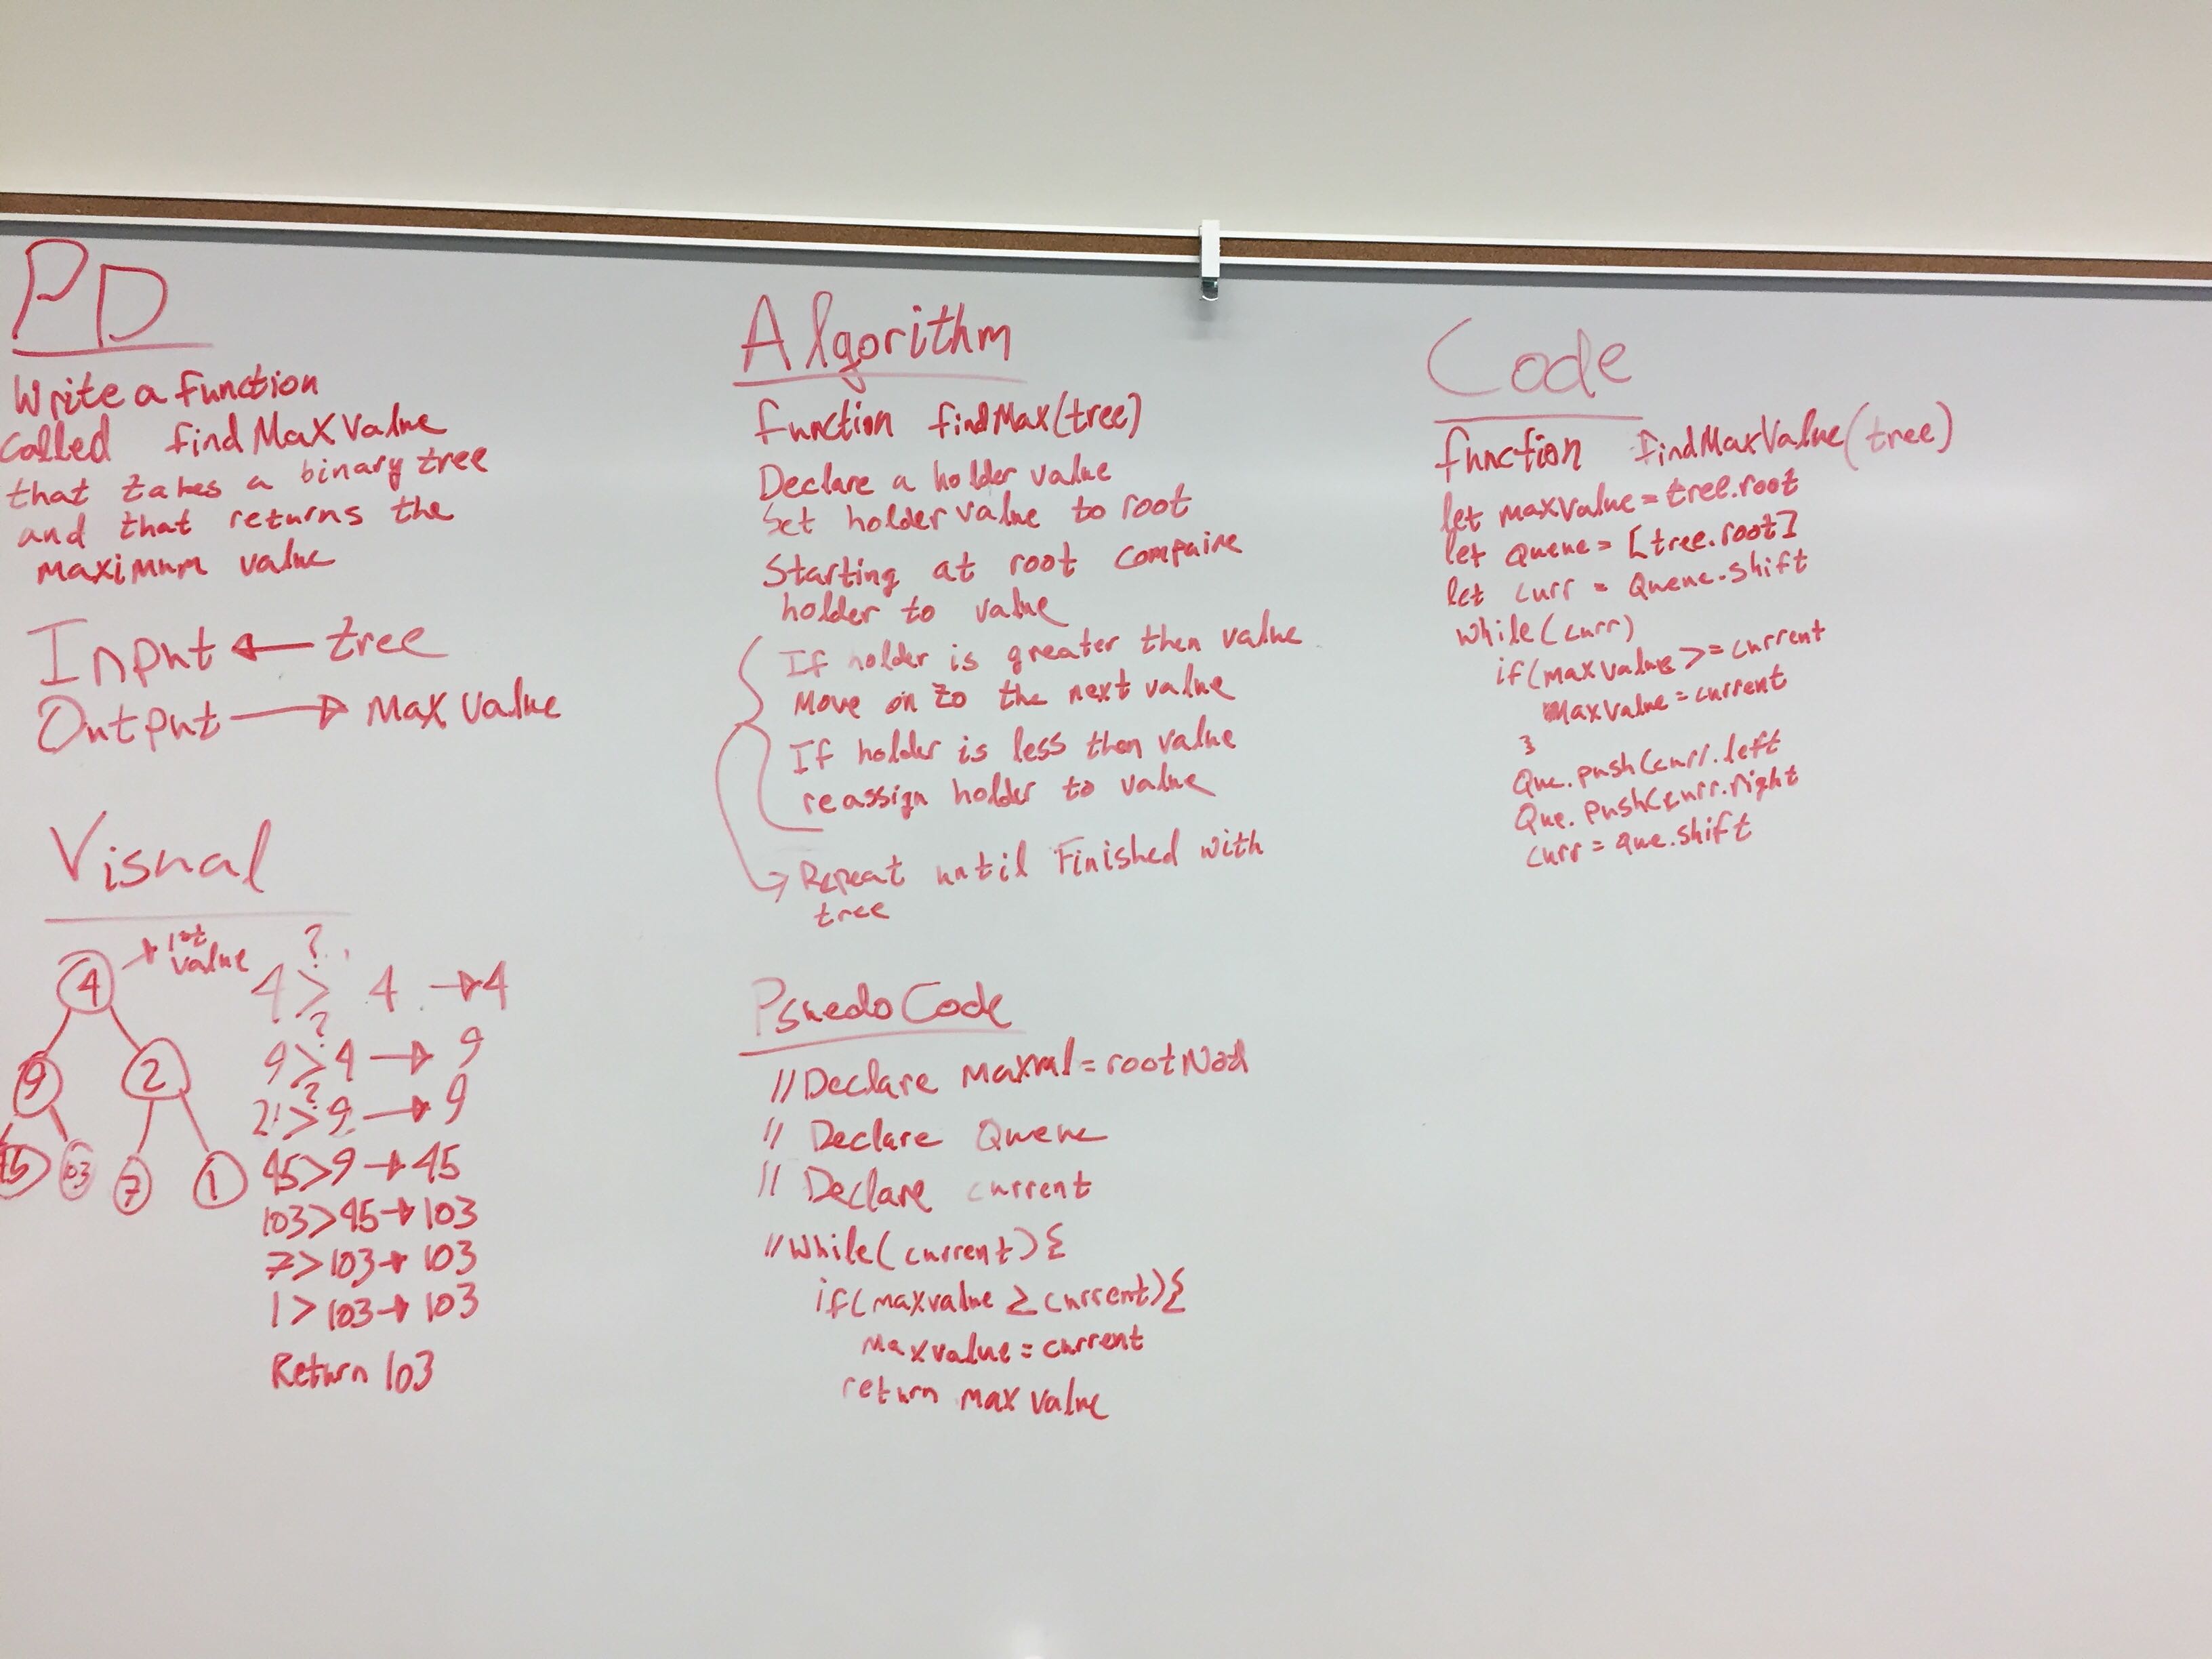 PD
Write a function
called findMaxValue
that takes a binary tree
and that returns the
maximum value
Input ← tree
Output → Max Value
Visual
4 → 1st
value
9 2
45 103 7 1
?
4 > 4 → 4
?
9 > 4 → 9
?
2 > 9 → 9
45 > 9 → 45
103 > 45 → 103
7 > 103 → 103
1 > 103 → 103
Return 103
Algorithm
function findMax(tree)
Declare a holder value
Set holder value to root
Starting at root compaire
holder to value
If holder is greater then value
Move on to the next value
If holder is less then value
reassign holder to value
→ Repeat until Finished with
tree
Psuedo Code
// Declare maxval = rootNod
// Declare Queue
// Declare current
// While(current){
if(maxvalue ≥ current){
maxvalue = current
return max value
Code
function findMaxValue(tree)
let maxValue = tree.root
let Queue = [tree.root]
let curr = Queue.shift
while(curr)
if(maxvalue >= current
maxvalue = current
}
Que.push(curr.left
Que.push(curr.right
curr = que.shift